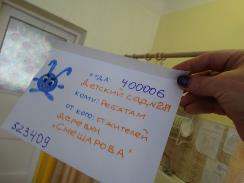 КУДА: 400006
ДЕТСКИЙ САД №281
КОМУ: РЕБЯТАМ
ОТ КОГО: ОТ ЖИТЕЛЕЙ
ДЕРЕВНИ
"СМЕШАРОВА"
523409